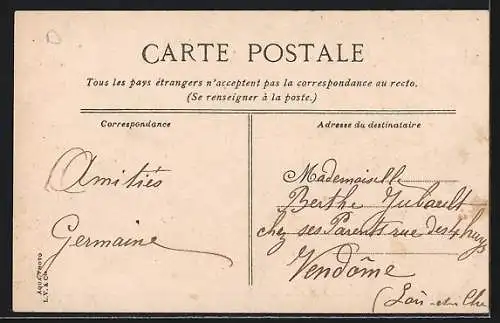 CARTE POSTALE
Tous les pays étrangers n'acceptent pas la correspondance au recto.
(Se renseigner à la poste.)
Correspondance
Amitiés
Germaine
AQUA PHOTO
L. V. & Cie
Adresse du destinataire
Mademoiselle
Berthe Jubault
chez ses Parents rue des 4 huyes
Vendôme
(Loir-et-Cher